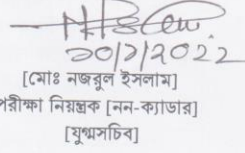 ২০/১/২০২২
[মোঃ নজরুল ইসলাম]
পরীক্ষা নিয়ন্ত্রক [নন-ক্যাডার]
[যুগ্মসচিব]